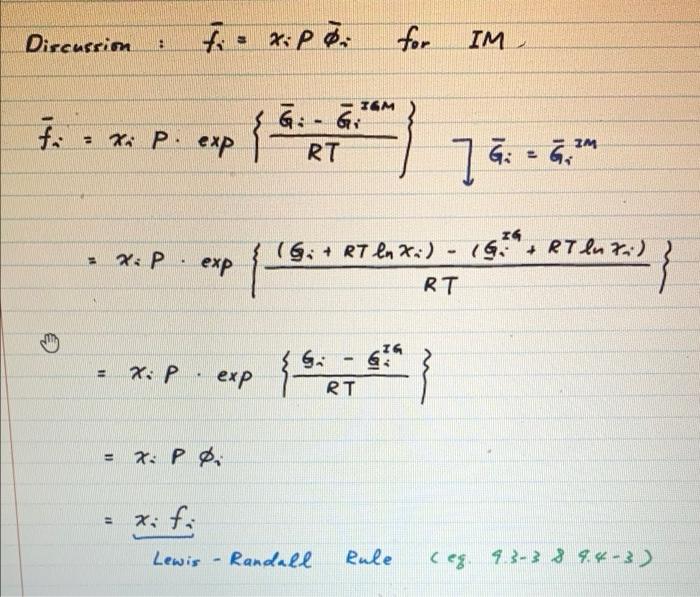 Discussion : f̄ᵢ = xᵢ P φ̄ᵢ for IM
f̄ᵢ = xᵢ P · exp { (Ḡᵢ - Ḡᵢ^IGM) / RT } ↓ Ḡᵢ = Ḡᵢ^IM
= xᵢ P · exp { ((G̲ᵢ + RT ln xᵢ) - (G̲ᵢ^IG + RT ln xᵢ)) / RT }
= xᵢ P · exp { (G̲ᵢ - G̲ᵢ^IG) / RT }
= xᵢ P φᵢ
= xᵢ fᵢ
Lewis - Randall Rule (eg. 9.3-3 & 9.4-3)